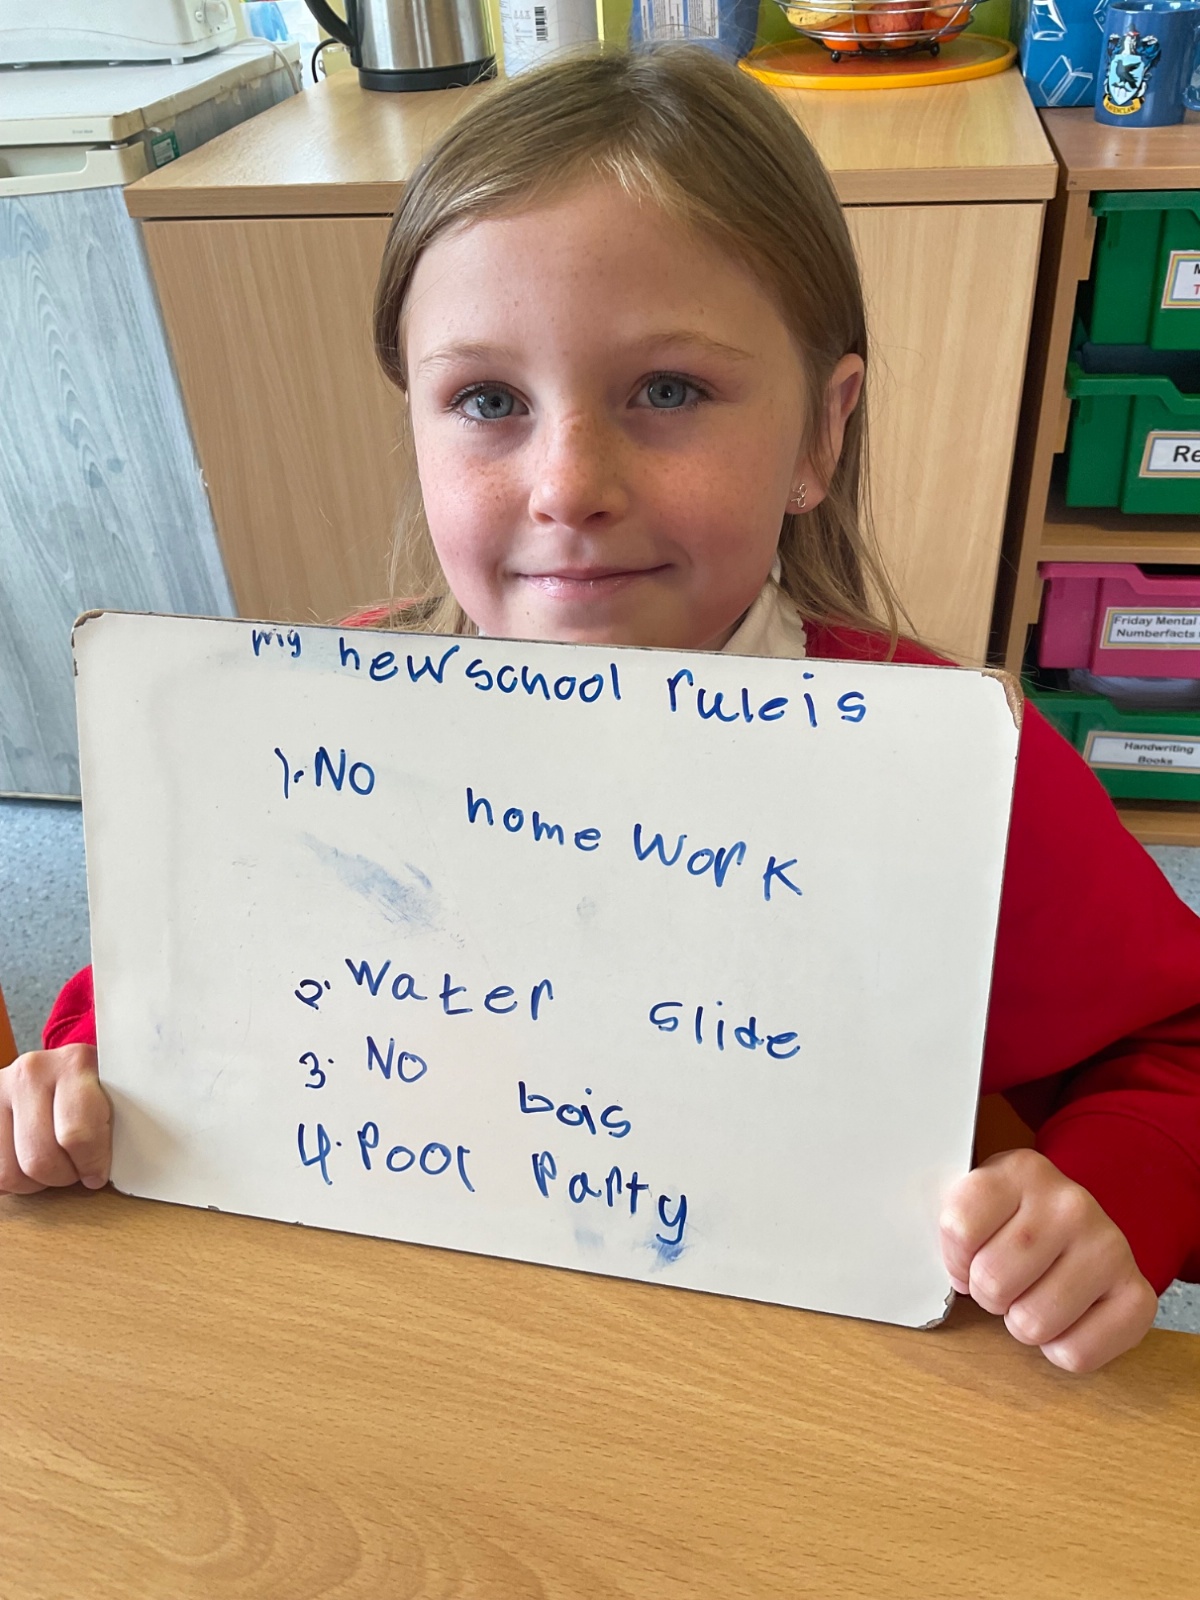 my new school ruleis
1. No home work
2. water slide
3. No bois
4. Pool Party
RAVENCLAW
Re
Friday Mental
Numberfacts
Handwriting
Books